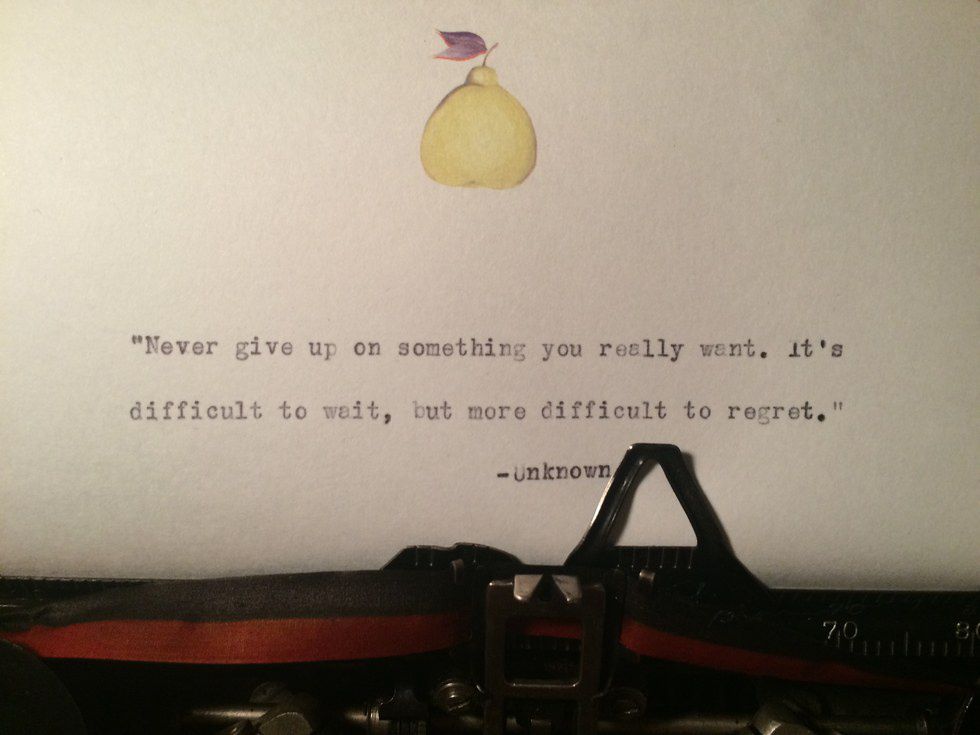 "Never give up on something you really want. It's
difficult to wait, but more difficult to regret."
-Unknown
70 80